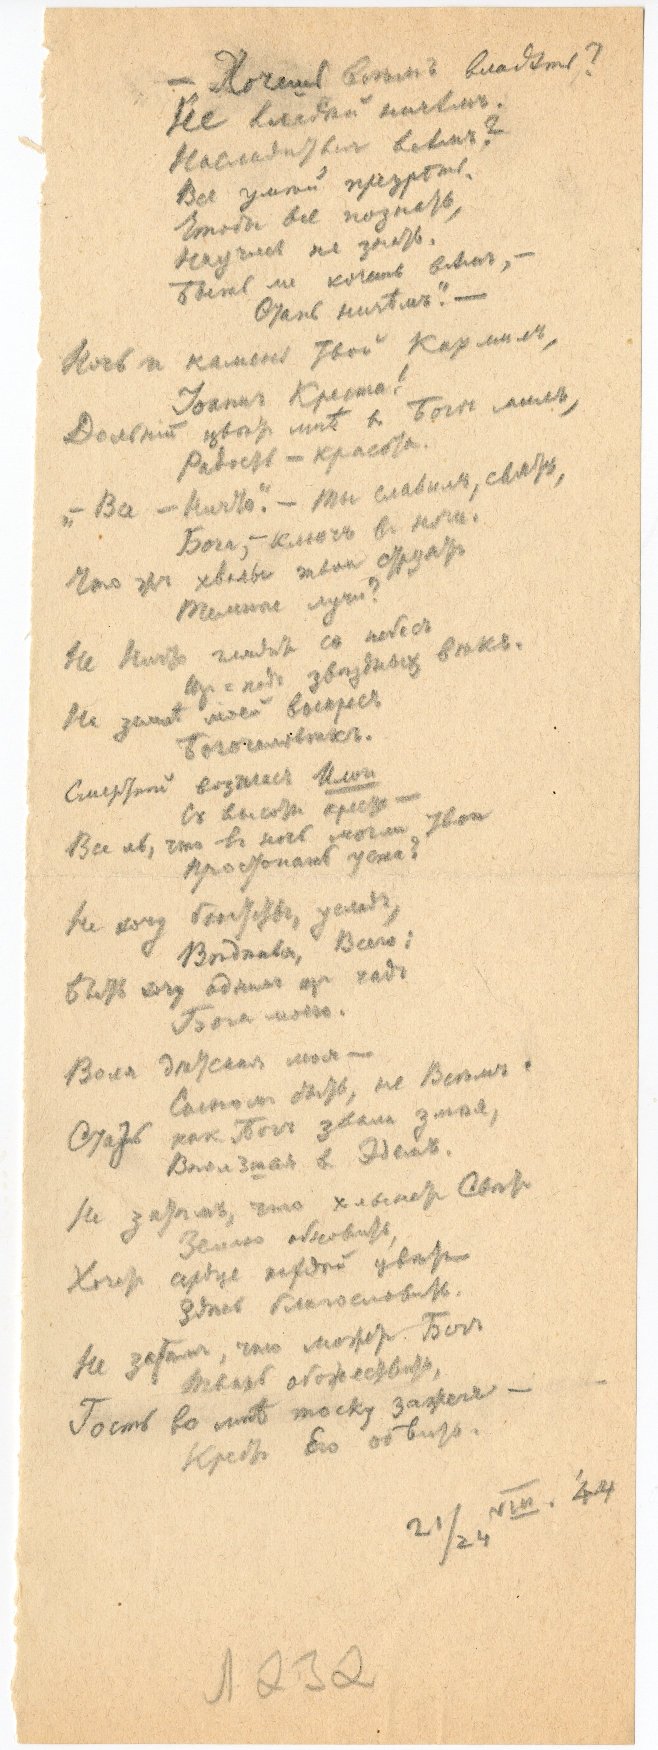 — Хочешь всѣмъ владѣть?
Не владѣй ничѣмъ.
Насладиться всѣмъ?
Все умѣй презрѣть.
Чтобы все познать,
Научись не знать.
Быть ли хочешь всѣмъ, —
Стань ничѣмъ". —
Ночь и камень твой Кармилъ,
Іоаннъ Креста!
Дольній цвѣтъ мнѣ в Богѣ милъ,
Радость — красота.
„— Все — Ничто". — ты славилъ, святъ,
Бога, — ключъ в ночи.
Что жъ хвалы твои струятъ
Темные лучи?
Не Ничто глядитъ съ небесъ
Из-подъ звѣздныхъ вѣкъ.
На землѣ моей воскресъ
Богочеловѣкъ.
Смертной возгласъ Илои
Съ высоты креста —
Все ль, что въ ночь могли твои
Простонать уста?
Не хочу блаженствъ, усладъ,
Воднаго, Всего;
Быть хочу однимъ изъ чадъ
Бога моего.
Воля дѣтская моя —
Сыномъ быть, не Всѣмъ.
Стать какъ Богъ звала змѣя,
Вползшая в Эдемъ.
Не затѣмъ, что хлынетъ Свѣтъ
Землю обновить,
Хочетъ сердце каждый цвѣтъ
Здѣсь благословить.
Не затѣмъ, что можетъ Богъ
Тварь обожествить,
Гость во мнѣ тоску зажегъ —
Крестъ Его обвить.
21/24 VIII. '44
Л 232